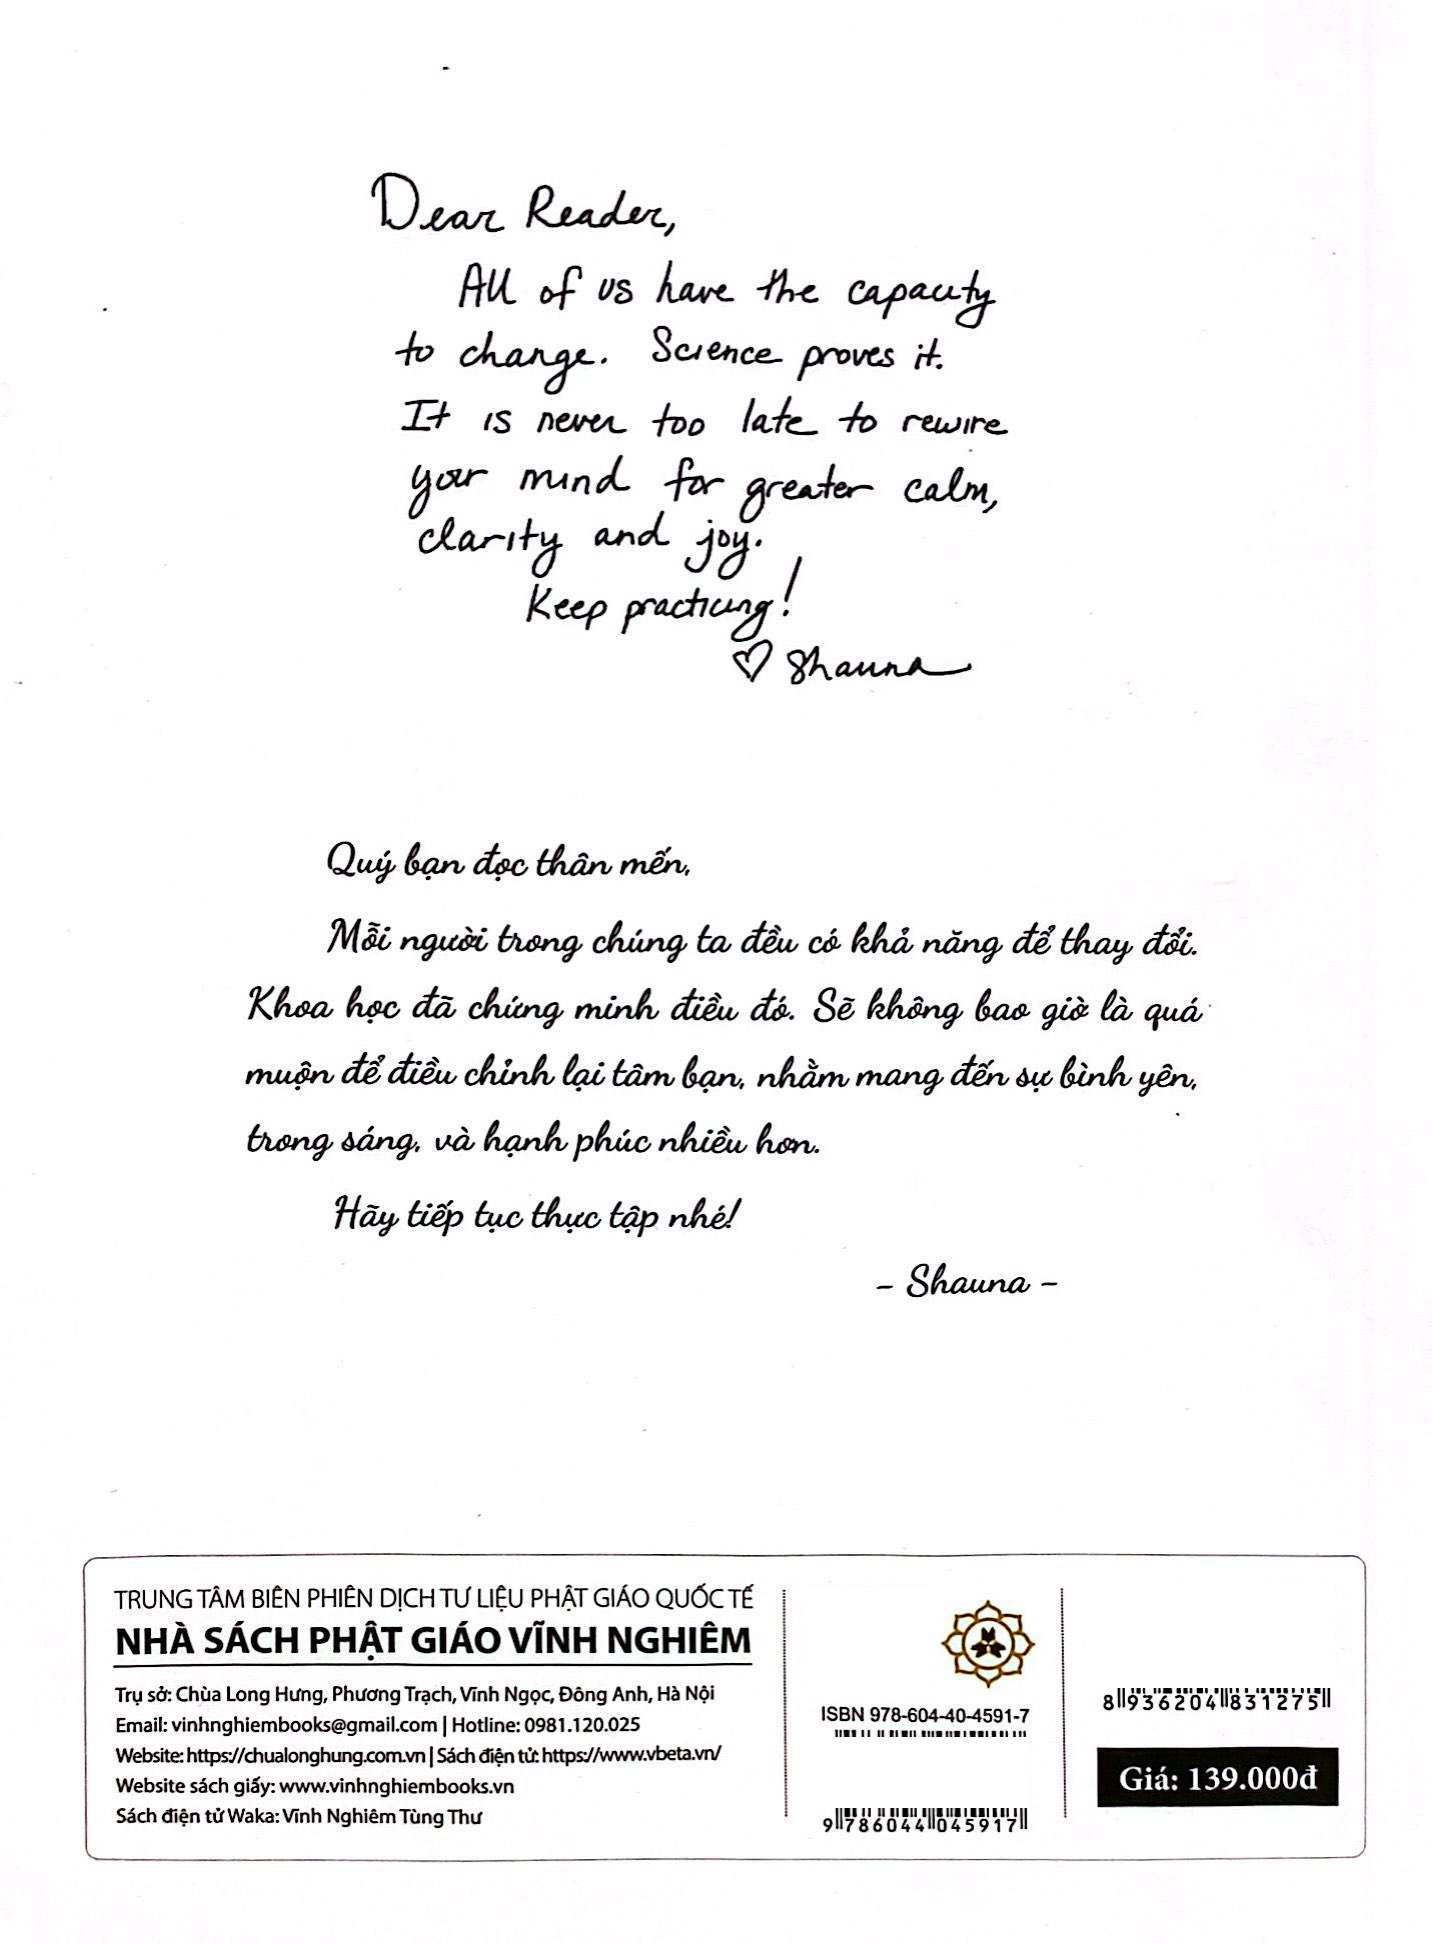 Dear Reader,
All of us have the capacity
to change. Science proves it.
It is never too late to rewire
your mind for greater calm,
clarity and joy.
Keep practicing!
♡ Shauna
Quý bạn đọc thân mến,
Mỗi người trong chúng ta đều có khả năng để thay đổi.
Khoa học đã chứng minh điều đó. Sẽ không bao giờ là quá
muộn để điều chỉnh lại tâm bạn, nhằm mang đến sự bình yên,
trong sáng, và hạnh phúc nhiều hơn.
Hãy tiếp tục thực tập nhé!
– Shauna –
TRUNG TÂM BIÊN PHIÊN DỊCH TƯ LIỆU PHẬT GIÁO QUỐC TẾ
NHÀ SÁCH PHẬT GIÁO VĨNH NGHIÊM
Trụ sở: Chùa Long Hưng, Phương Trạch, Vĩnh Ngọc, Đông Anh, Hà Nội
Email: vinhnghiembooks@gmail.com | Hotline: 0981.120.025
Website: https://chualonghung.com.vn | Sách điện tử: https://www.vbeta.vn/
Website sách giấy: www.vinhnghiembooks.vn
Sách điện tử Waka: Vĩnh Nghiêm Tùng Thư
ISBN 978-604-40-4591-7
9 786044 045917
8 936204 831275
Giá: 139.000đ